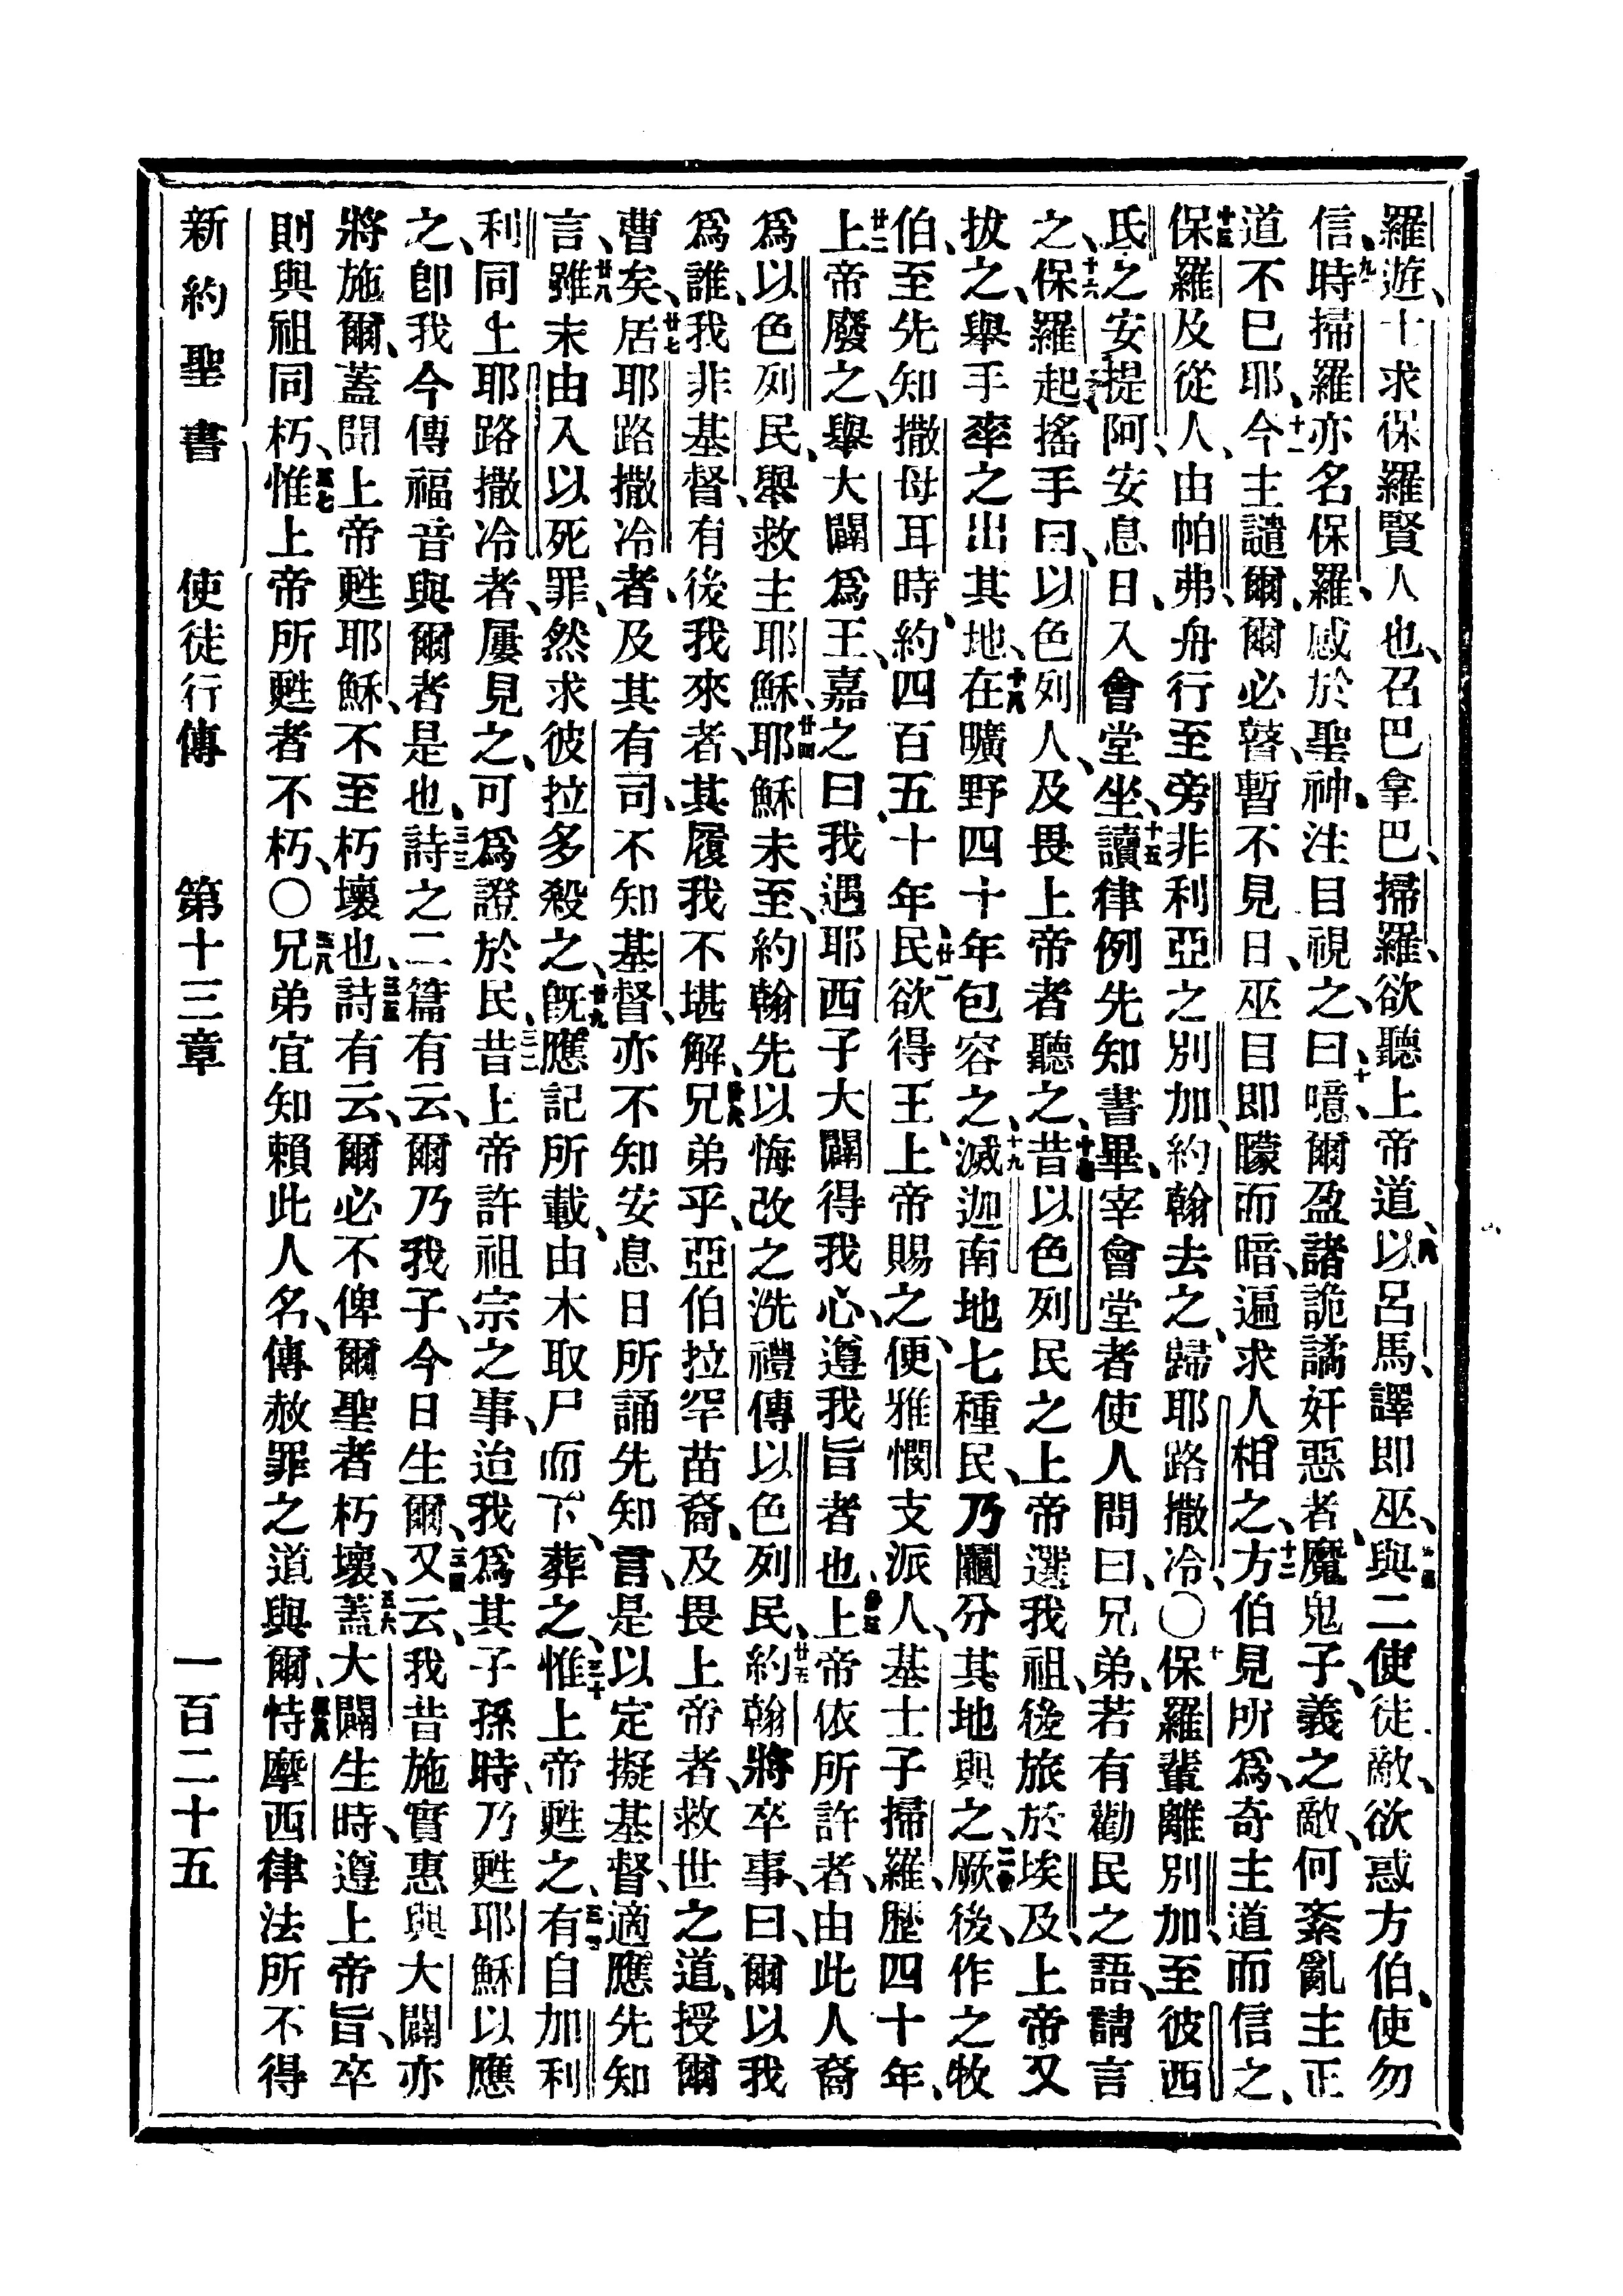 羅遊、士求保羅賢人也、召巴拿巴、掃羅、欲聽上帝道、八以呂馬、譯即巫、與二使徒敵、欲惑方伯、使勿
信、九時掃羅亦名保羅、感於聖神、注目視之、曰、十噫、爾盈諸詭譎奸惡者、魔鬼子、義之敵、何紊亂主正
道不已耶、十一今主譴爾、爾必瞽、暫不見日、巫目即矇而暗、遍求人相之、十二方伯見所爲、奇主道而信之、
十三保羅及從人、由帕弗、舟行至旁非利亞之別加、約翰去之、歸耶路撒冷、〇十四保羅輩離別加、至彼西
氏之安提阿、安息日、入會堂坐、十五讀律例先知書畢、宰會堂者使人問曰、兄弟、若有勸民之語、請言
之、十六保羅起、搖手曰、以色列人、及畏上帝者聽之、十七昔以色列民之上帝選我祖、後旅於埃及、上帝又
拔之、舉手率之出其地、十八在曠野四十年包容之、十九滅迦南地七種民、乃鬮分其地與之、二十厥後、作之牧
伯、至先知撒母耳時、約四百五十年、廿一民欲得王、上帝賜之、便雅憫支派人、基士子掃羅、歷四十年、
廿二上帝廢之、舉大闢爲王、嘉之曰、我遇耶西子大闢得我心、遵我旨者也、廿三上帝依所許者、由此人裔
爲以色列民、舉救主耶穌、廿四耶穌未至、約翰先以悔改之洗禮傳以色列民、廿五約翰將卒事、曰、爾以我
爲誰、我非基督、有後我來者、其履我不堪解、廿六兄弟乎、亞伯拉罕苗裔、及畏上帝者、救世之道、授爾
曹矣、廿七居耶路撒冷者、及其有司、不知基督、亦不知安息日所誦先知言、是以定擬基督、適應先知
言、廿八雖末由入以死罪、然求彼拉多殺之、廿九旣應記所載、由木取尸而下、葬之、三十惟上帝甦之、三一有自加利
利同上耶路撒冷者、屢見之、可爲證於民、三二昔上帝許祖宗之事、迨我爲其子孫時、乃甦耶穌以應
之、卽我今傳福音與爾者是也、三三詩之二篇有云、爾乃我子、今日生爾、三四又云、我昔施實惠與大闢、亦
將施爾、蓋聞上帝甦耶穌、不至朽壞也、三五詩有云、爾必不俾爾聖者朽壞、三六蓋大闢生時、遵上帝旨、卒
則與祖同朽、三七惟上帝所甦者不朽、〇三八兄弟宜知賴此人名、傳赦罪之道與爾、三九恃摩西律法所不得
新約聖書　使徒行傳　第十三章　一百二十五